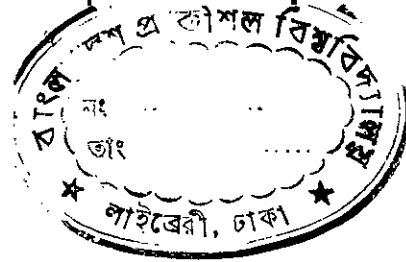 বাংলাদেশ প্রকৌশল বিশ্ববিদ্যালয়
নং
তাং
লাইব্রেরী, ঢাকা